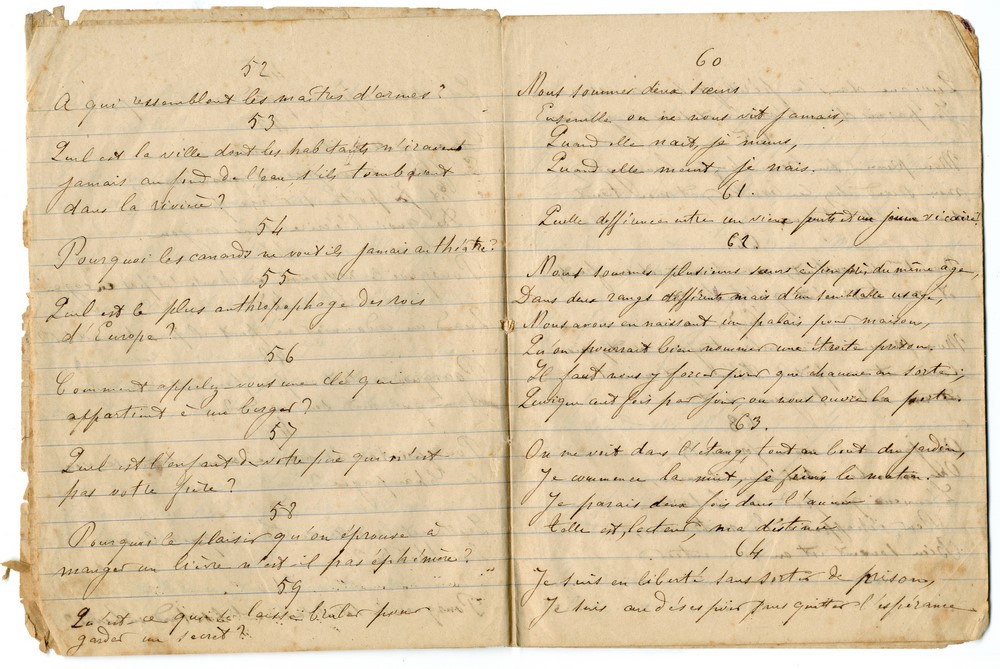 52
A qui ressemblent les maîtres d'armes ?
53
Quel est la ville dont les habitants n'iraient
jamais au fond de l'eau, s'ils tombaient
dans la rivière ?
54
Pourquoi les canards ne vont ils jamais au théatre ?
55
Quel est le plus anthropophage des rois
d'Europe ?
56
Comment appelez-vous une clé qui
appartient à un berger ?
57
Quel est l'enfant de votre père qui n'est
pas votre frère ?
58
Pourquoi le plaisir qu'on éprouve à
manger un lièvre n'est il pas éphémère ?
59
Qu'est ce que se laisse bruler pour
garder un secret ?
60
Nous sommes deux sœurs
Ensemble on ne nous vit jamais,
Quand elle nait, je meurs,
Quand elle meurt, je nais.
61.
Quelle différence entre un vieux et un jeune vicaire ?
62.
Nous sommes plusieurs sœurs à peu près du même âge,
Dans deux rangs différents mais d'un semblable usage,
Nous avons en naissant un palais pour maison,
Qu'on pourrait bien nommer une étroite prison.
Il faut nous y forcer pour que chacune en sorte,
Quoique cent fois par jour on nous ouvre la porte.
63.
On me voit dans l'étang, tout au bout du jardin,
Je commence la nuit, je finis le matin.
Je parais deux fois dans l'année
telle est, lecteur, ma destinée
64
Je suis en liberté sans sortir de prison,
Je suis au désespoir sans quitter l'espérance